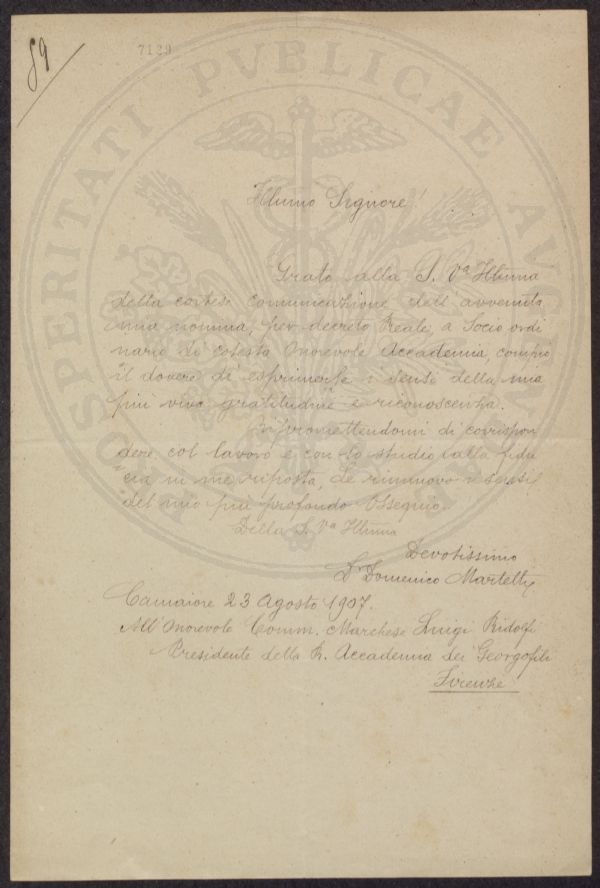 89
7129
Illumo Signore!
Grato alla S. Va Illuma
della cortese comunicazione dell'avvenuta
mia nomina, per decreto Reale, a Socio ordi
nario di cotesta Onorevole Accademia, compio
il dovere di esprimerle i sensi della mia
più viva gratitudine e riconoscenza.
Ripromettendomi di corrispon
dere col lavoro e con lo studio alla fidu
cia in me riposta, Le rinnovo i sensi
del mio più profondo Ossequio.
Della S. Va Illuma
Devotissimo
Dr Domenico Martelli
Camaiore 23 Agosto 1907.
All'Onorevole Comm. Marchese Luigi Ridolfi
Presidente della R. Accademia dei Georgofili
Firenze
PROSPERITATI PVBLICAE AVGENDAE